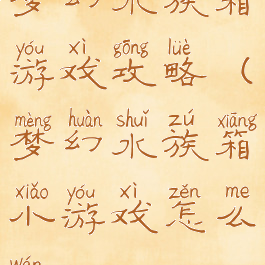 梦幻水族箱
yóu xì gōng lüè
游戏攻略（
mèng huàn shuǐ zú xiāng
梦幻水族箱
xiǎo yóu xì zěn me
小游戏怎么
wán